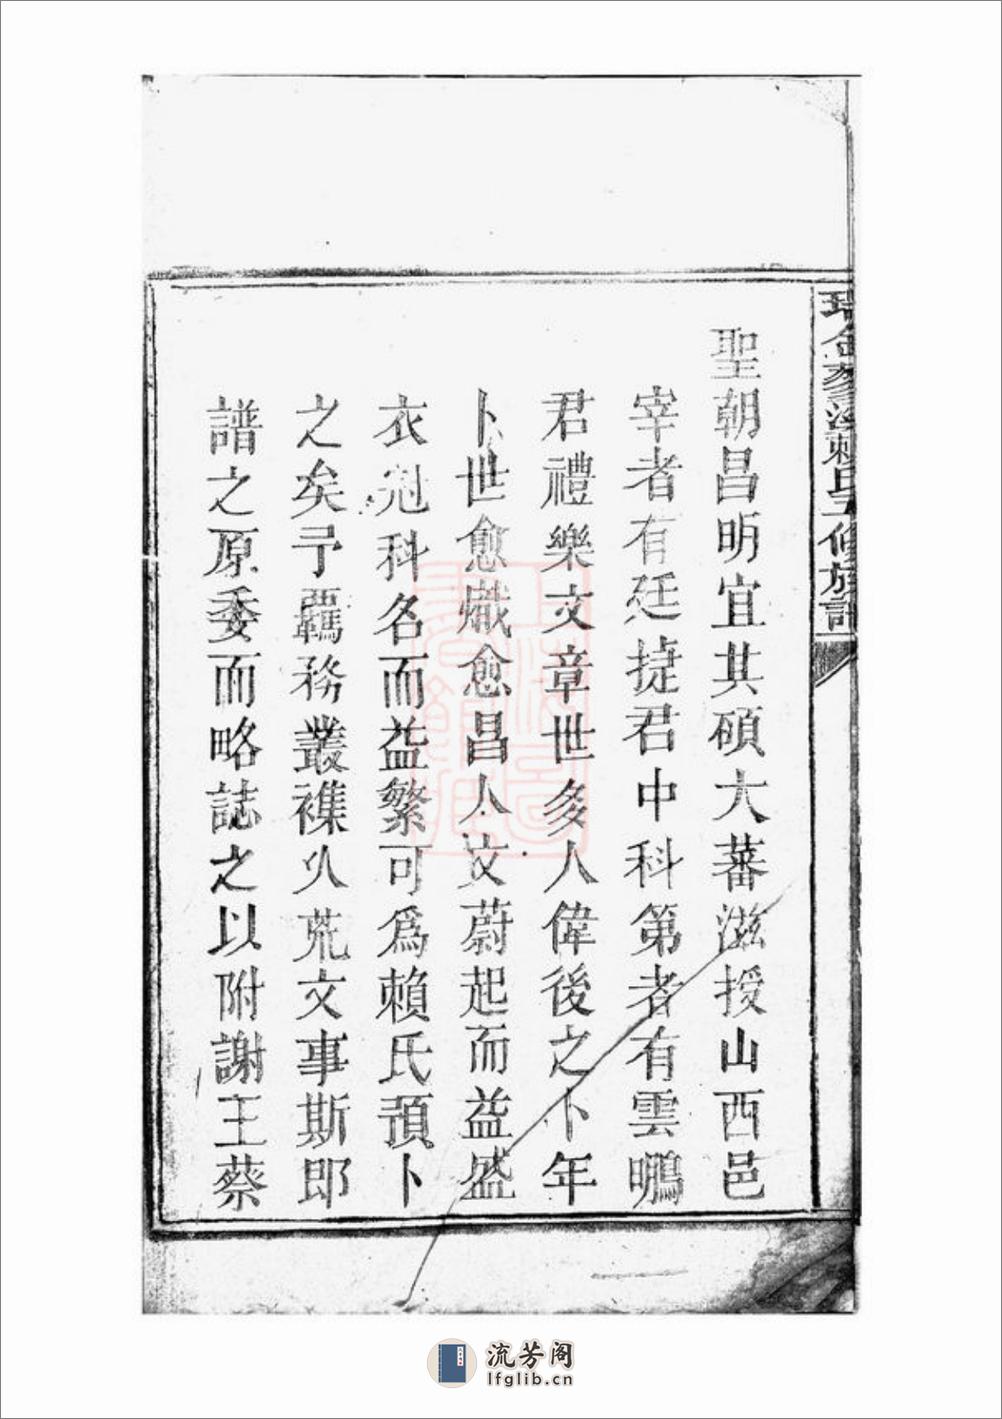 聖朝昌明宜其碩大蕃滋授山西邑
宰者有廷捷君中科第者有雲鵰
君禮樂文章世多人偉後之卜年
卜世愈熾愈昌人文蔚起而益盛
衣冠科名而益繁可爲賴氏預卜
之矣予羈務叢襍久荒文事斯即
譜之原委而略誌之以附謝王蔡
賴氏 修族譜
流芳阁
lfglib.cn